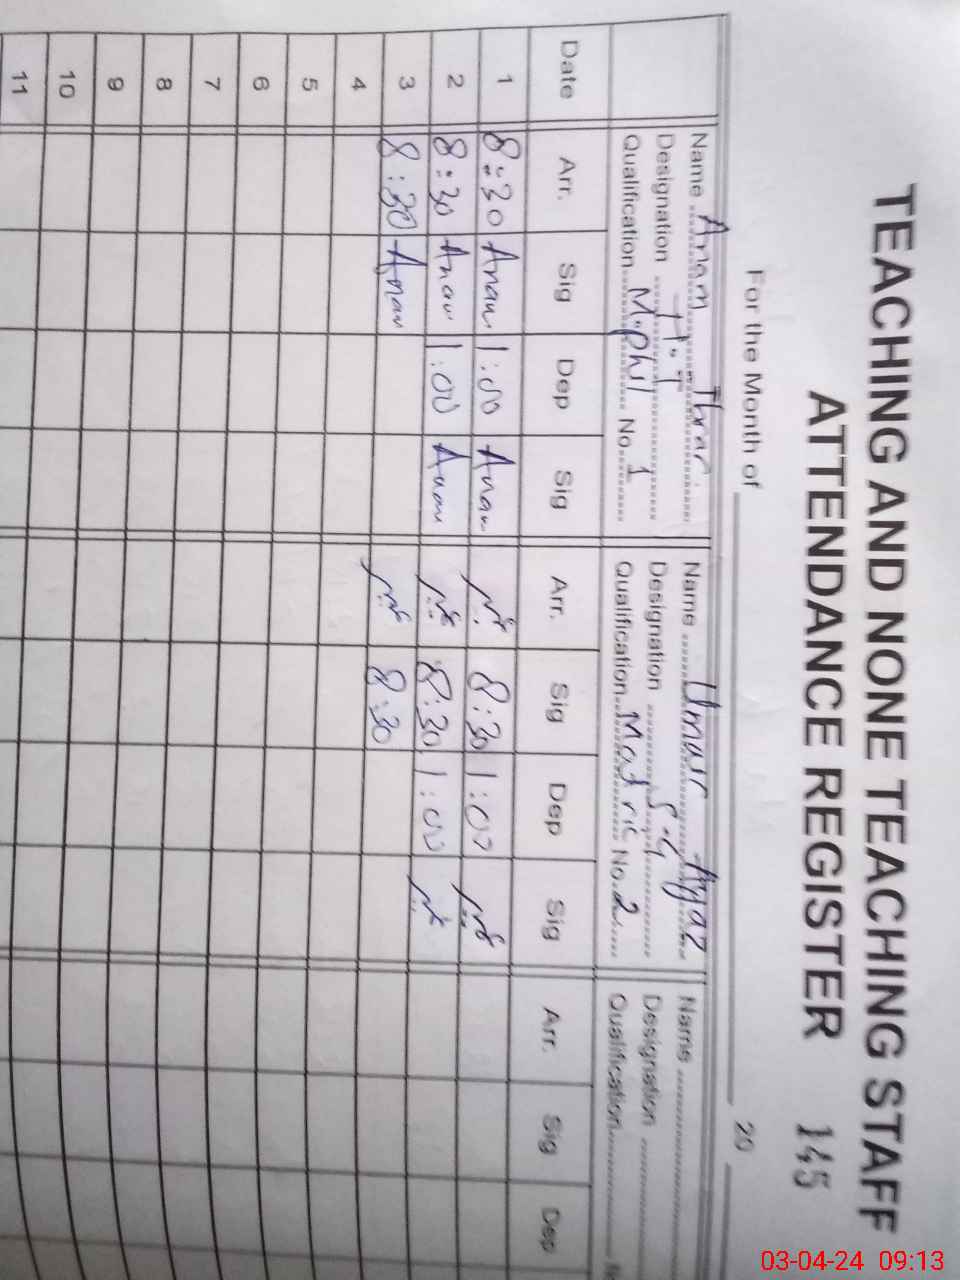 TEACHING AND NONE TEACHING STAFF
ATTENDANCE REGISTER 145
For the Month of 20
Name Anam Name Umair Ayaz Name
Designation H.T Designation Designation
Qualification M.phil No. 1 Qualification Matric No. 2 Qualification
Date Arr. Sig Dep Sig Arr. Sig Dep Sig Arr. Sig Dep
1 8:30 Anam 1:00 Anam 8:30 1:00
2 8:30 Anam 1:00 Anam 8:30 1:00
3 8:30 Anam 8:30
4
5
6
7
8
9
10
11
03-04-24 09:13